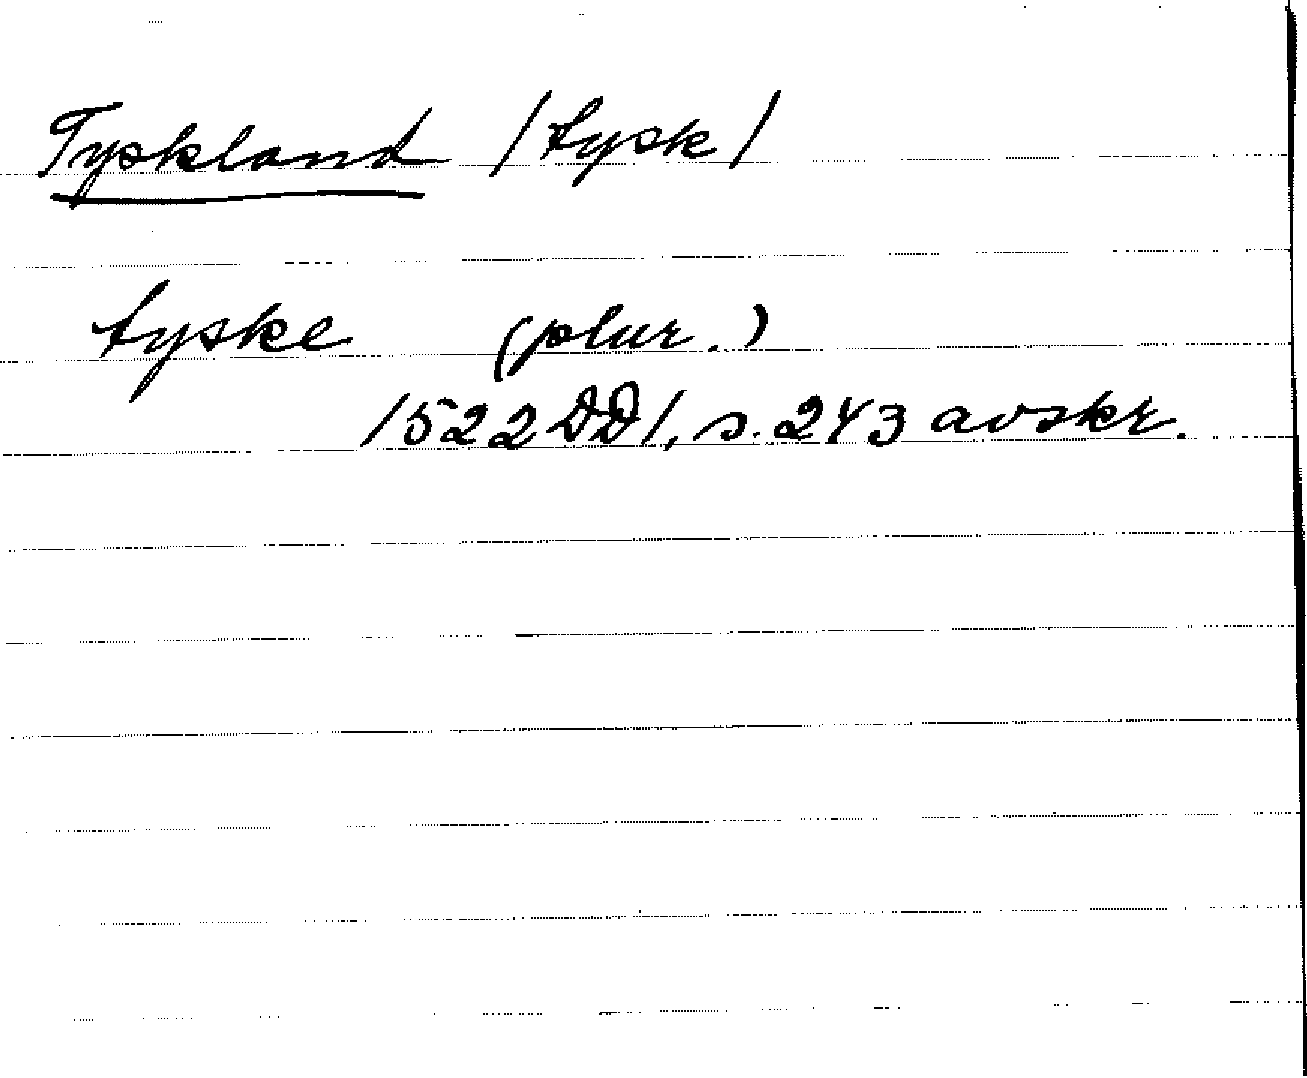 Tyskland /tysk/
tyske (plur.)
1522 DD1, s. 243 avskr.